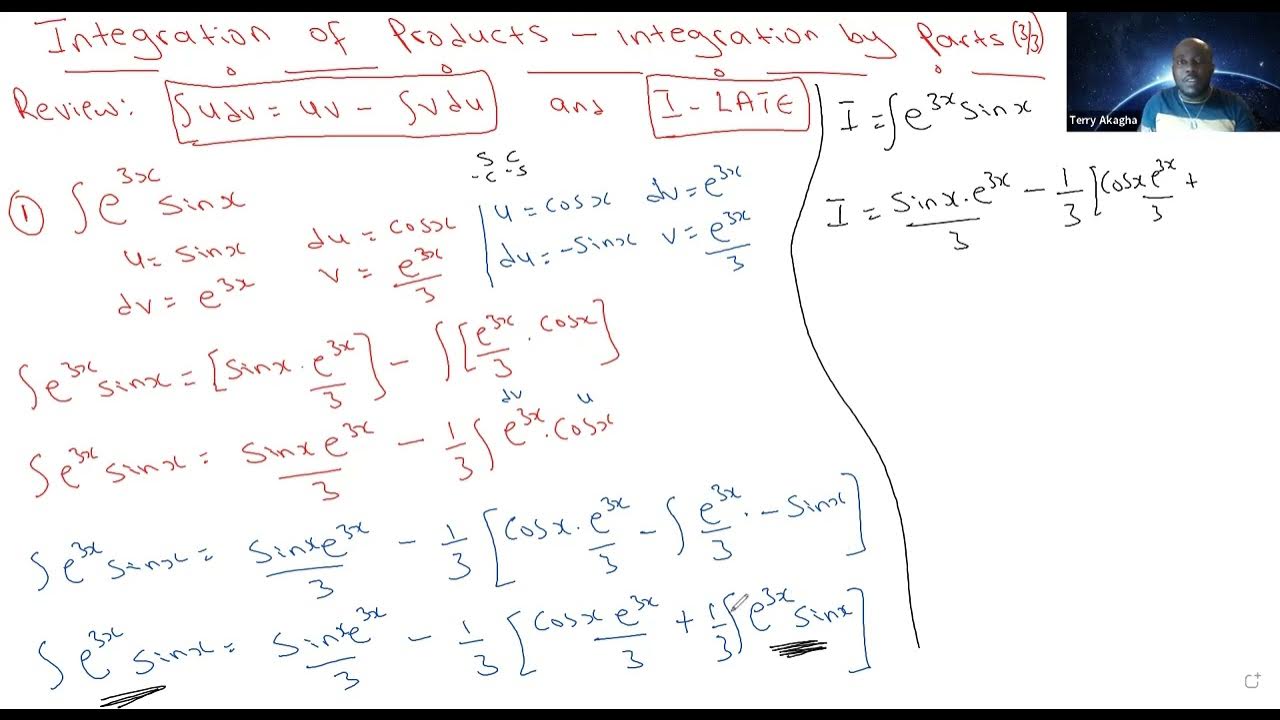 Integration of Products – integration by Parts (3/3)
Review: ∫udv = uv - ∫vdu and I - LATE
① ∫e^{3x} sinx
u = sinx du = cosx
dv = e^{3x} v = e^{3x}/3
S C
-C -S
u = cosx dv = e^{3x}
du = -sinx v = e^{3x}/3
∫e^{3x} sinx = [sinx · e^{3x}/3] - ∫[e^{3x}/3 · cosx]
dv u
∫e^{3x} sinx = sinx e^{3x}/3 - 1/3 ∫e^{3x} · cosx
∫e^{3x} sinx = sinx e^{3x}/3 - 1/3 [cosx · e^{3x}/3 - ∫e^{3x}/3 · -sinx]
∫e^{3x} sinx = sinx e^{3x}/3 - 1/3 [cosx e^{3x}/3 + 1/3 ∫e^{3x} sinx]
I = ∫e^{3x} sinx
I = sinx · e^{3x}/3 - 1/3 [cosx e^{3x}/3 +
Terry Akagha